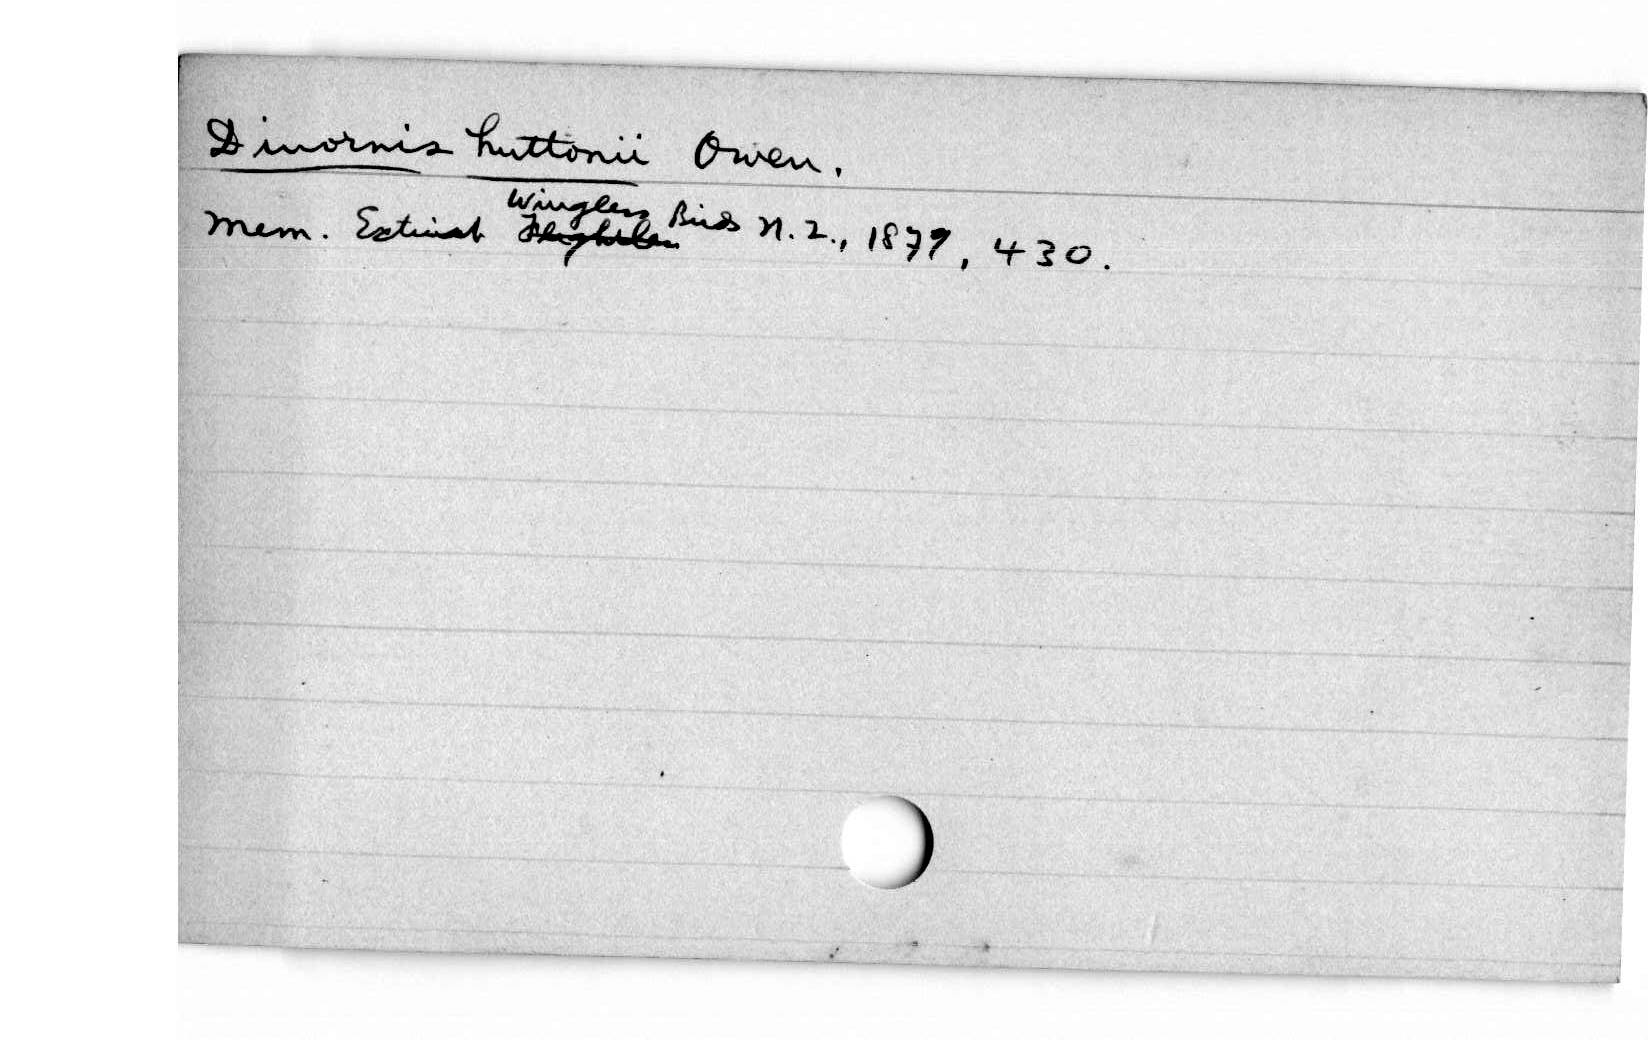 Dinornis huttonii Owen.
Mem. Extinct Wingless Birds N.Z., 1879, 430.